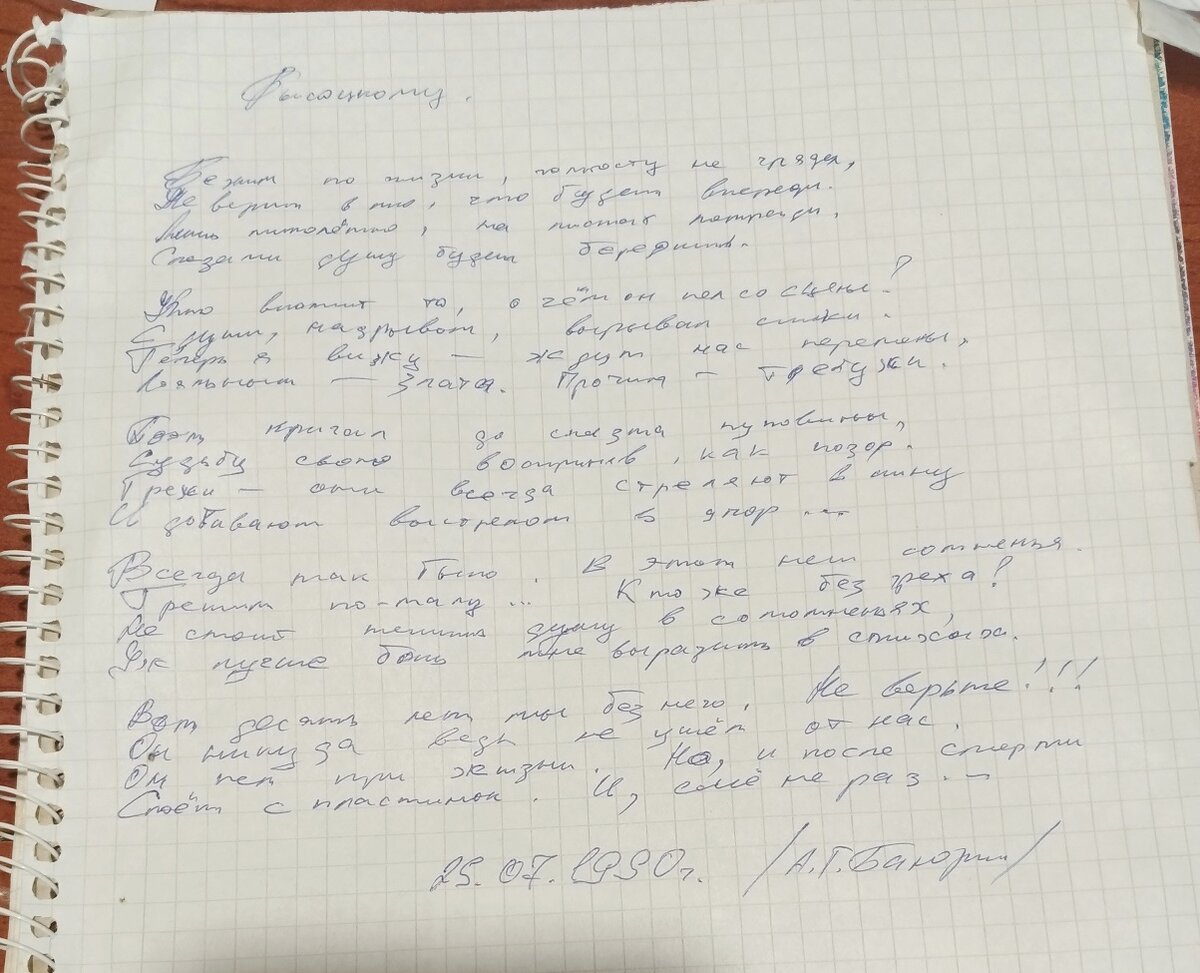 Высоцкому.
Бежим по жизни, попросту не глядя,
Не верим в то, что будет впереди.
Лишь мимолётно, на
Слезами душу будем бередить.
Кто вспомнит то, о чём он пел со сцены?
С души, надрывом, вырывал стихи.
Теперь я вижу – ждут нас перемены,
Лояльным – Злата. Прочим – Требухи.
Поэт кричал до спазма пуповины,
Судьбу свою восприняв, как позор.
Грехи – они всегда стреляют в спину
И добивают выстрелом в упор...
Всегда так было. В этом нет сомненья.
Грешим по-малу... Кто же без греха?
Не стоит тешить душу в сомненьях,
Уж лучше боль мне выразить в стихах.
Вот десять лет мы без него. Не верьте!!!
Он никуда ведь не ушёл от нас.
Он пел при жизни. Но, и после смерти
Споёт с пластинок. И, ещё не раз...
25.07.1990г. /А.Г.